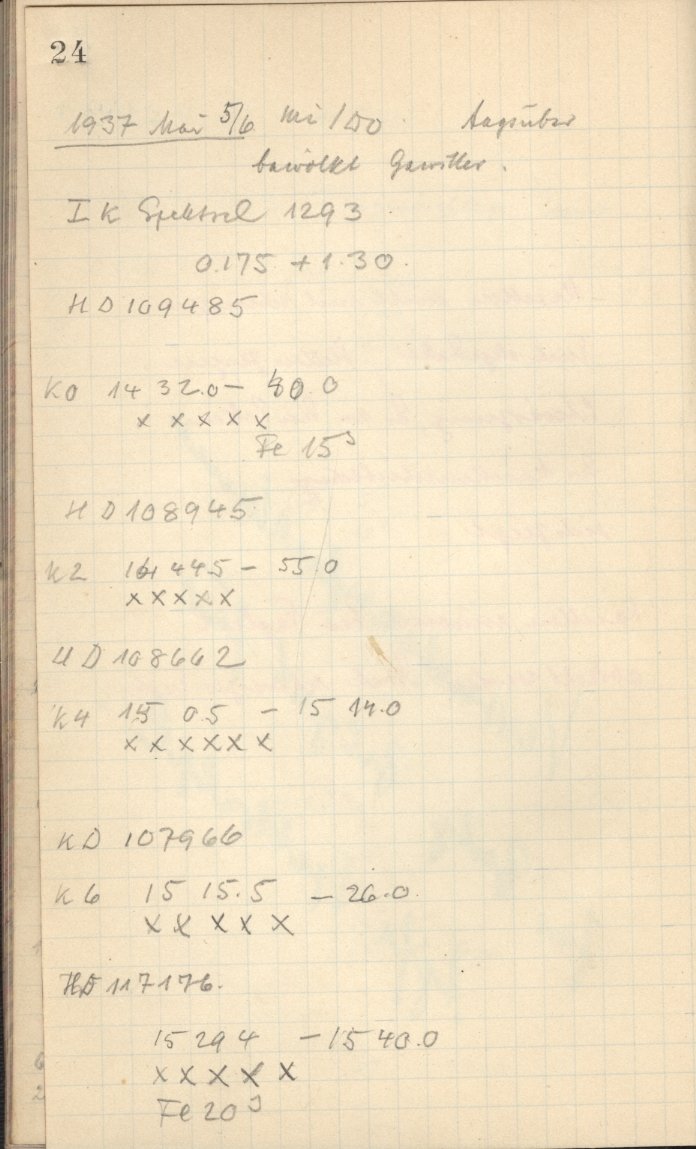 24
1937 Mai 5/6 Mi/Do tagsüber
bewölkt Gewitter.
I K Spektral 1293
0.175 + 1.30.
HD 109485
K0 14 32.0 – 40.0
x x x x x
Fe 15s
HD 108945
K2 14 44 5 – 55 0
x x x x x
HD 108662
K4 15 0.5 – 15 14.0
x x x x x x
HD 107966
K6 15 15.5 – 26.0
x x x x x
HD 117176.
15 29 4 – 15 40.0
x x x x x
Fe 20s